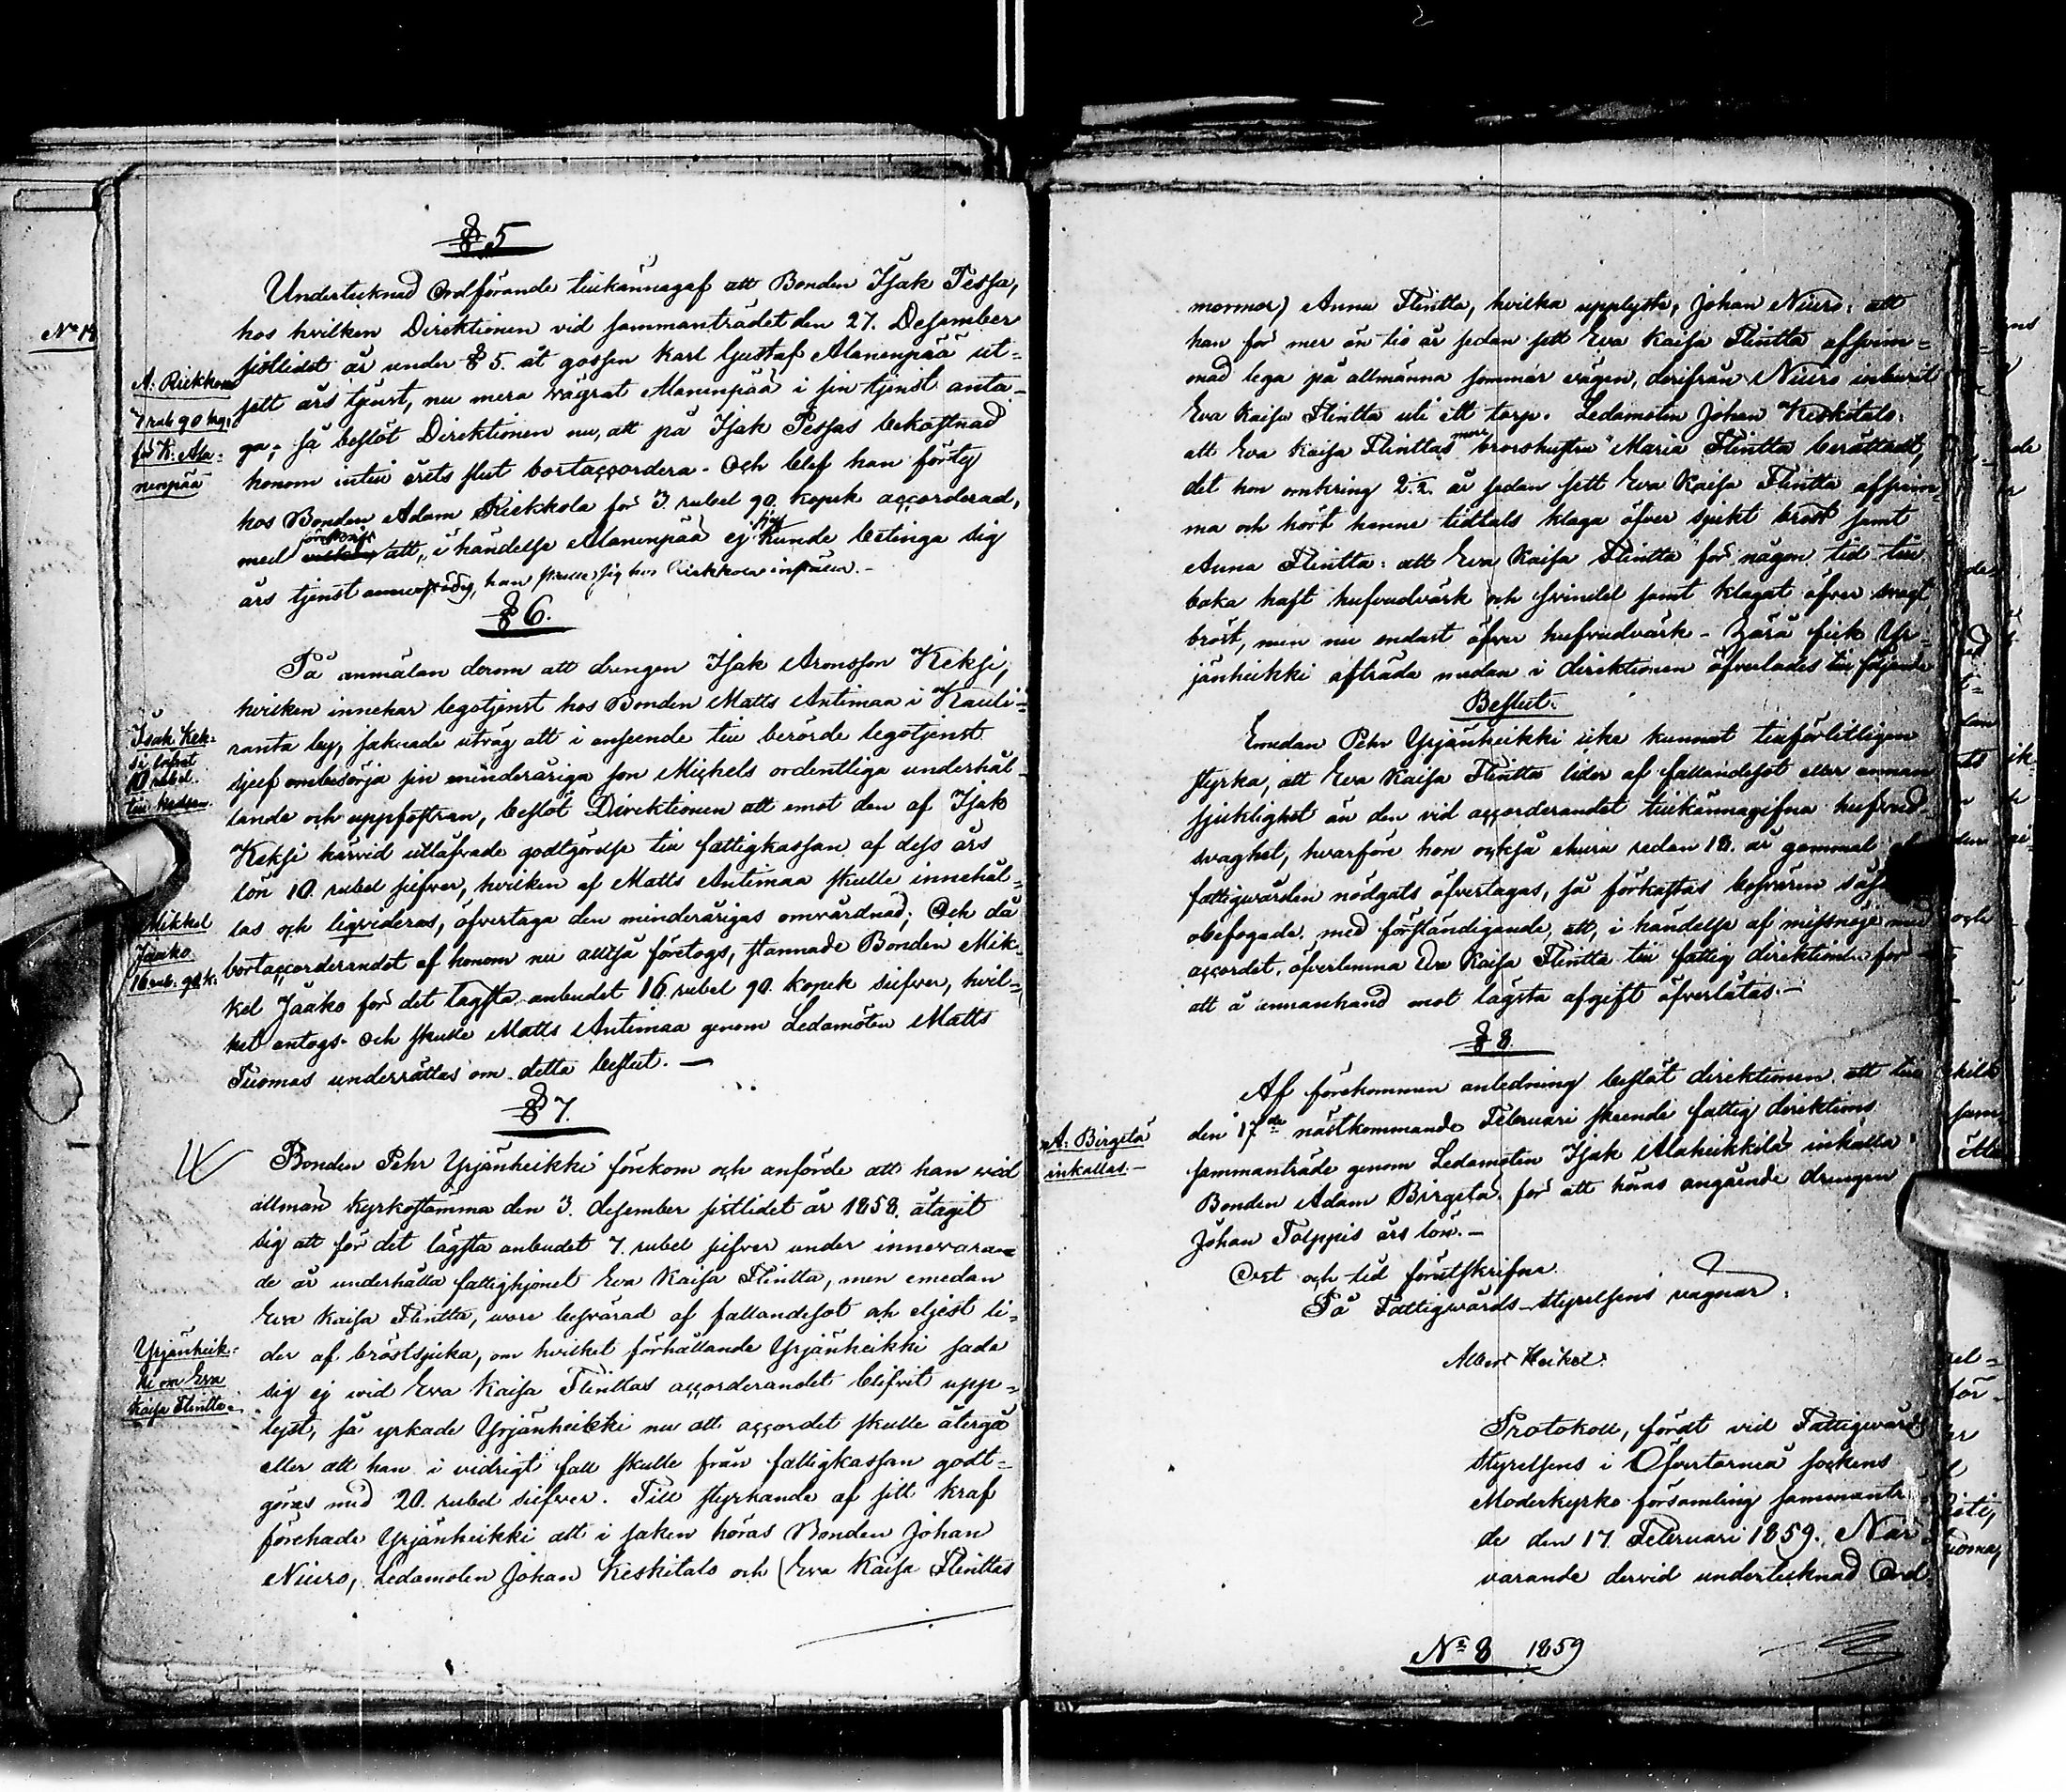 § 5
Undertecknad Ordförande tillkännagaf att Bonden Isak Pessa,
hos hvilken Direktionen vid sammanträdet den 27. December
sistlidet år under § 5. åt gossen Karl Gustaf Alanenpää ut-
sett års tjenst, nu mera vägrat Alanenpää i sin tjenst anta-
ga; så beslöt Direktionen nu, att på Isak Pessas bekostnad
honom intill årets slut bortaccordera. Och blef han förty
hos Bonden Adam Riekkola för 3 rubel 90 kopek accorderad,
med att, i händelse Alanenpää ej kunde betinga sig
års tjenst han skulle sig hos Riekkola
A: Riekkola
90 kop.
för K: Ala-
nenpää
No 14
§ 6.
På anmälan derom att drengen Isak Aronsson Keksi,
hvilken innehar legotjenst hos Bonden Matts Antimaa i Kauli-
ranta by, saknade utväg att i anseende till berörde legotjenst
sjelf ombesörja sin minderåriga son Michels ordentliga underhål-
lande och uppfostran, beslöt Direktionen att emot den af Isak
Keksi härvid utlåfvade godtgörelse till fattigkassan af dess års
lön 10. rubel silfver, hvilken af Matts Antimaa skulle innehål-
las och liqvideras, öfvertaga den minderårigas omvårdnad; Och då
bortaccorderandet af honom nu alltså företogs, stannade Bonden Mik-
kel Jaako för det lägsta anbudet 16 rubel 90. kopek silfver, hvil-
ket antogs. Och skulle Matts Antimaa genom Ledamoten Matts
Tuomas underrättas om detta beslut. —
Isak Kek-
si lofvat
10 rubel
Mikkel
Jaako
16 rub. 90 k.
§ 7.
Bonden Pehr Yrjänheikki förekom och anförde att han vid
allmän Kyrkostämma den 3. December sistlidet år 1858. åtagit
sig att för det lägsta anbudet 7. rubel silfver under innevaran-
de år underhålla fattighjonet Eva Kaisa Flintta, men emedan
Eva Kaisa Flintta, wore besvärad af fallandesot och eljest li-
der af bröstsjuka, om hvilket förhållande Yrjänheikki sade
sig ej vid Eva Kaisa Flinttas accorderandet blifvit upp-
lyst, så yrkade Yrjänheikki nu att accordet skulle återgå
eller att han i vidrigt fall skulle från fattigkassan godt-
göras med 20. rubel silfver. Till styrkande af sitt kraf
förehade Yrjänheikki att i saken höras Bonden Johan
Niuro, Ledamoten Johan Keskitalo och (Eva Kaisa Flinttas
Yrjänheik-
ki om Eva
Kaisa Flintta
mormor) Anna Flintta, hvilka upplyste, Johan Niuro: att
han för mer än tio år sedan sett Eva Kaisa Flintta afsvim-
mad lega på allmänna sommar vägen, derifrån Niuro inburit
Eva Kaisa Flintta uti ett torp. Ledamoten Johan Keskitalo:
att Eva Kaisa Flinttas brorshustru Maria Flintta berättadt,
det hon omkring 2. år sedan sett Eva Kaisa Flintta afsvim-
ma och hört henne tidtals klaga öfver sjukt bröst samt
Anna Flintta: att Eva Kaisa Flintta för någon tid till-
baka haft hufvudvärk och svindel samt klagat öfver svagt
bröst, men nu endast öfver hufvudvärk. fick Yr-
jänheikki afträda medan i direktionen öfverlades till följande
Beslut:
Emedan Pehr Yrjänheikki icke kunnat tillförlitligen
styrka, att Eva Kaisa Flintta lider af fallandesot eller annan
sjuklighet än den vid accorderandet tillkännagifna hufvud-
svaghet, hvarföre hon också ehuru redan 18. år gammal
fattigwården nödgats öfvertagas, så förkastas besvären
obefogade, med förständigande, att, i händelse af missnöje med
accordet, öfverlemna Eva Kaisa Flintta till fattig direktionen för
att å annanhand mot lägsta afgift öfverlåtas. —
§ 8.
Af förekommen anledning beslöt direktionen att till
den 17de nästkommande Februari skeende fattig direktions
sammanträde genom Ledamoten Isak Alaheikkilä inkalla
Bonden Adam Birgeta, för att höras angående drengen
Johan Tolppis års lön. —
A: Birgeta
inkallas. —
Ort och tid förutskrifna
På Fattigwårds-styrelsens vägnar:
Albert Heikel.
Protokoll, fördt vid Fattigwårds
Styrelsens i Öfvertorneå sockens
Moderkyrko församling sammanträ-
de den 17 Februari 1859. När-
varande dervid undertecknad Ord-
No 8 1859